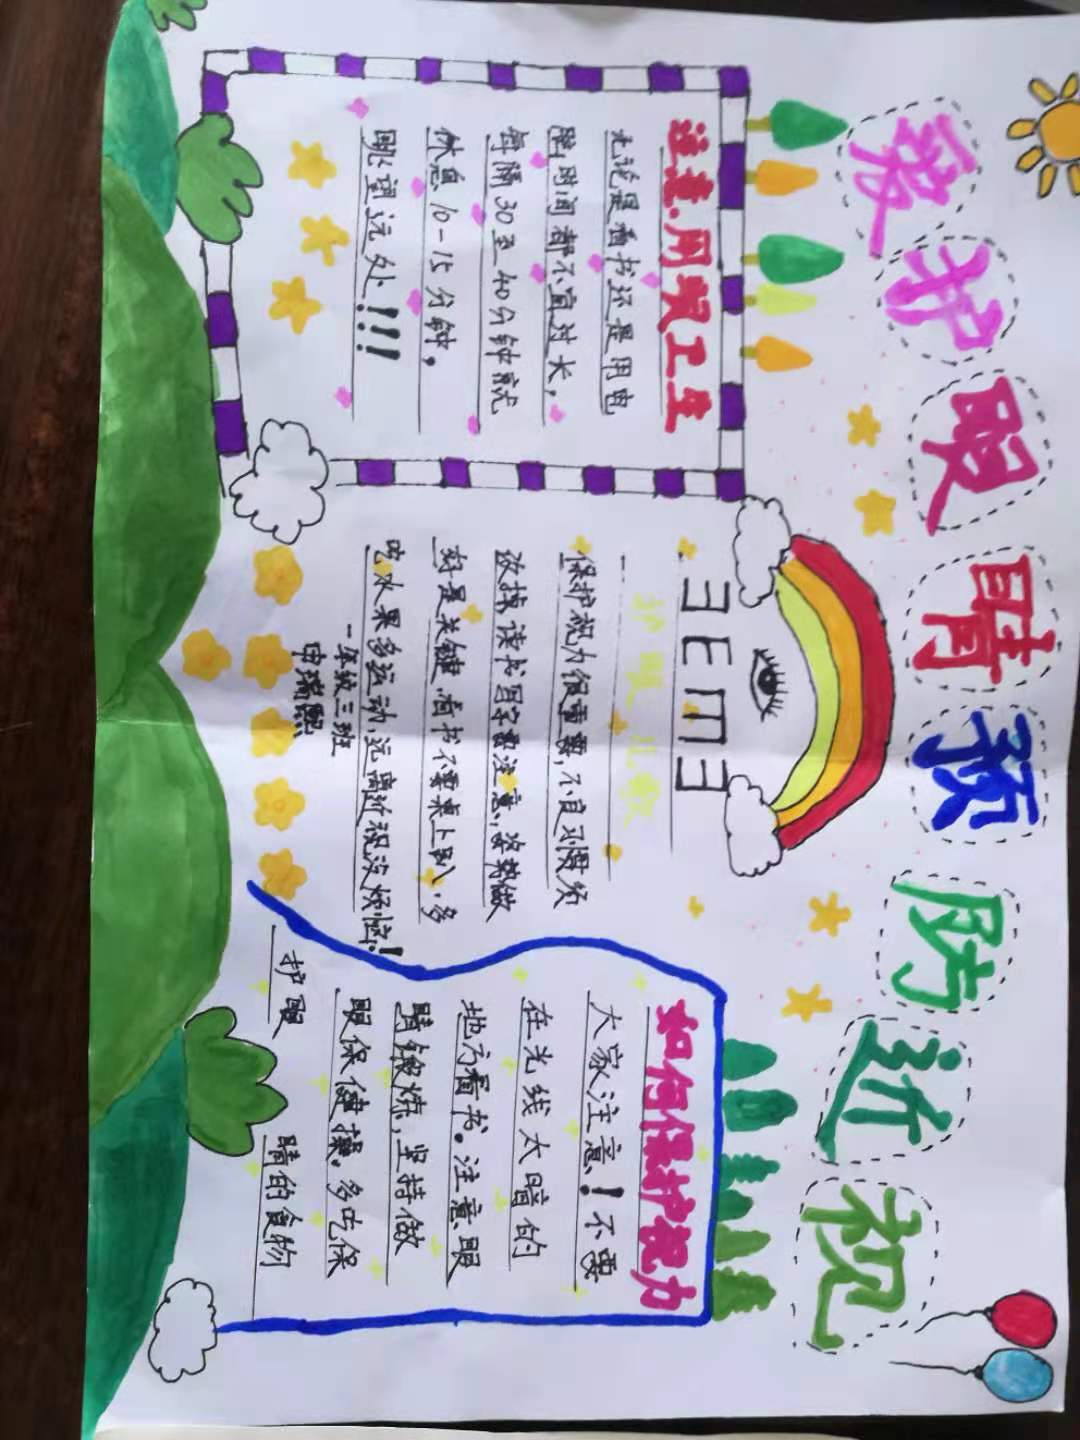 爱护眼睛预防近视
注意用眼卫生
无论是看书还是用电
脑时间都不宜过长，
每隔30至40分钟就
休息10-15分钟，
眺望远处！！！
E E E E
护眼儿歌
保护视力很重要，不良习惯须
改掉，读书写字要注意，姿势做
好是关键，看书不要桌上趴，多
吃水果多运动，远离近视没烦恼！
一年级三班
申瑞熙
如何保护视力
大家注意！不要
在光线太暗的
地方看书。注意眼
睛锻炼，坚持做
眼保健操。多吃保
护眼睛的食物